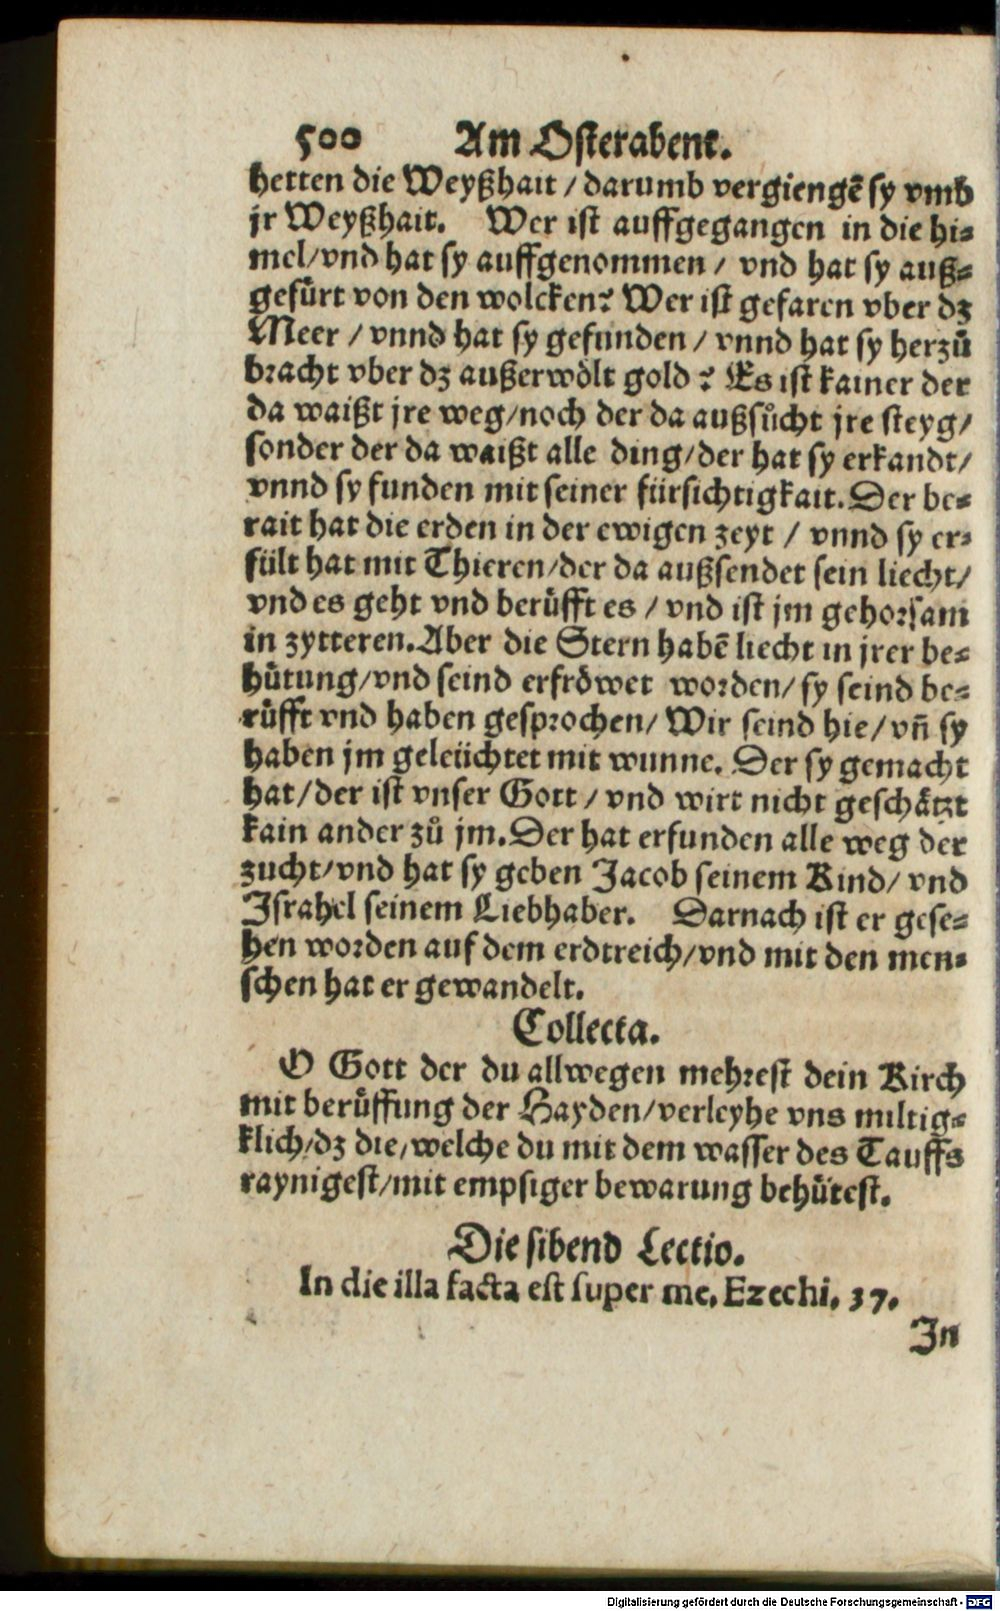 500 Am Osterabent.
hetten die Weyßhait / darumb vergiengē sy vmb
jr Weyßhait. Wer ist auffgegangen in die hi-
mel/vnd hat sy auffgenommen / vnd hat sy auß-
gefürt von den wolcken? Wer ist gefaren vber dz
Meer / vnnd hat sy gefunden / vnnd hat sy herzů
bracht vber dz außerwölt gold? Es ist kainer der
da waißt jre weg/noch der da außsůcht jre steyg/
sonder der da waißt alle ding/der hat sy erkandt/
vnnd sy funden mit seiner fürsichtigkait. Der be-
rait hat die erden in der ewigen zeyt / vnnd sy er-
fült hat mit Thieren/der da außsendet sein liecht/
vnd es geht vnd berůfft es / vnd ist jm gehorsam
in zytteren. Aber die Stern habē liecht in jrer be-
hůtung/vnd seind erfröwet worden/ sy seind be-
růfft vnd haben gesprochen/ Wir seind hie/ vñ sy
haben jm geleüchtet mit wunne. Der sy gemacht
hat/der ist vnser Gott / vnd wirt nicht geschätzt
kain ander zů jm. Der hat erfunden alle weg der
zucht/vnd hat sy geben Jacob seinem Kind/ vnd
Israhel seinem Liebhaber. Darnach ist er gese-
hen worden auf dem erdtreich/vnd mit den men-
schen hat er gewandelt.
Collecta.
O Gott der du allwegen mehrest dein Kirch
mit berůffung der Hayden/verleyhe vns miltig-
klich/dz die/welche du mit dem wasser des Tauffs
raynigest/mit empsiger bewarung behůtest.
Die sibend Lectio.
In die illa facta est super me. Ezechi. 37.
In
Digitalisierung gefördert durch die Deutsche Forschungsgemeinschaft - DFG